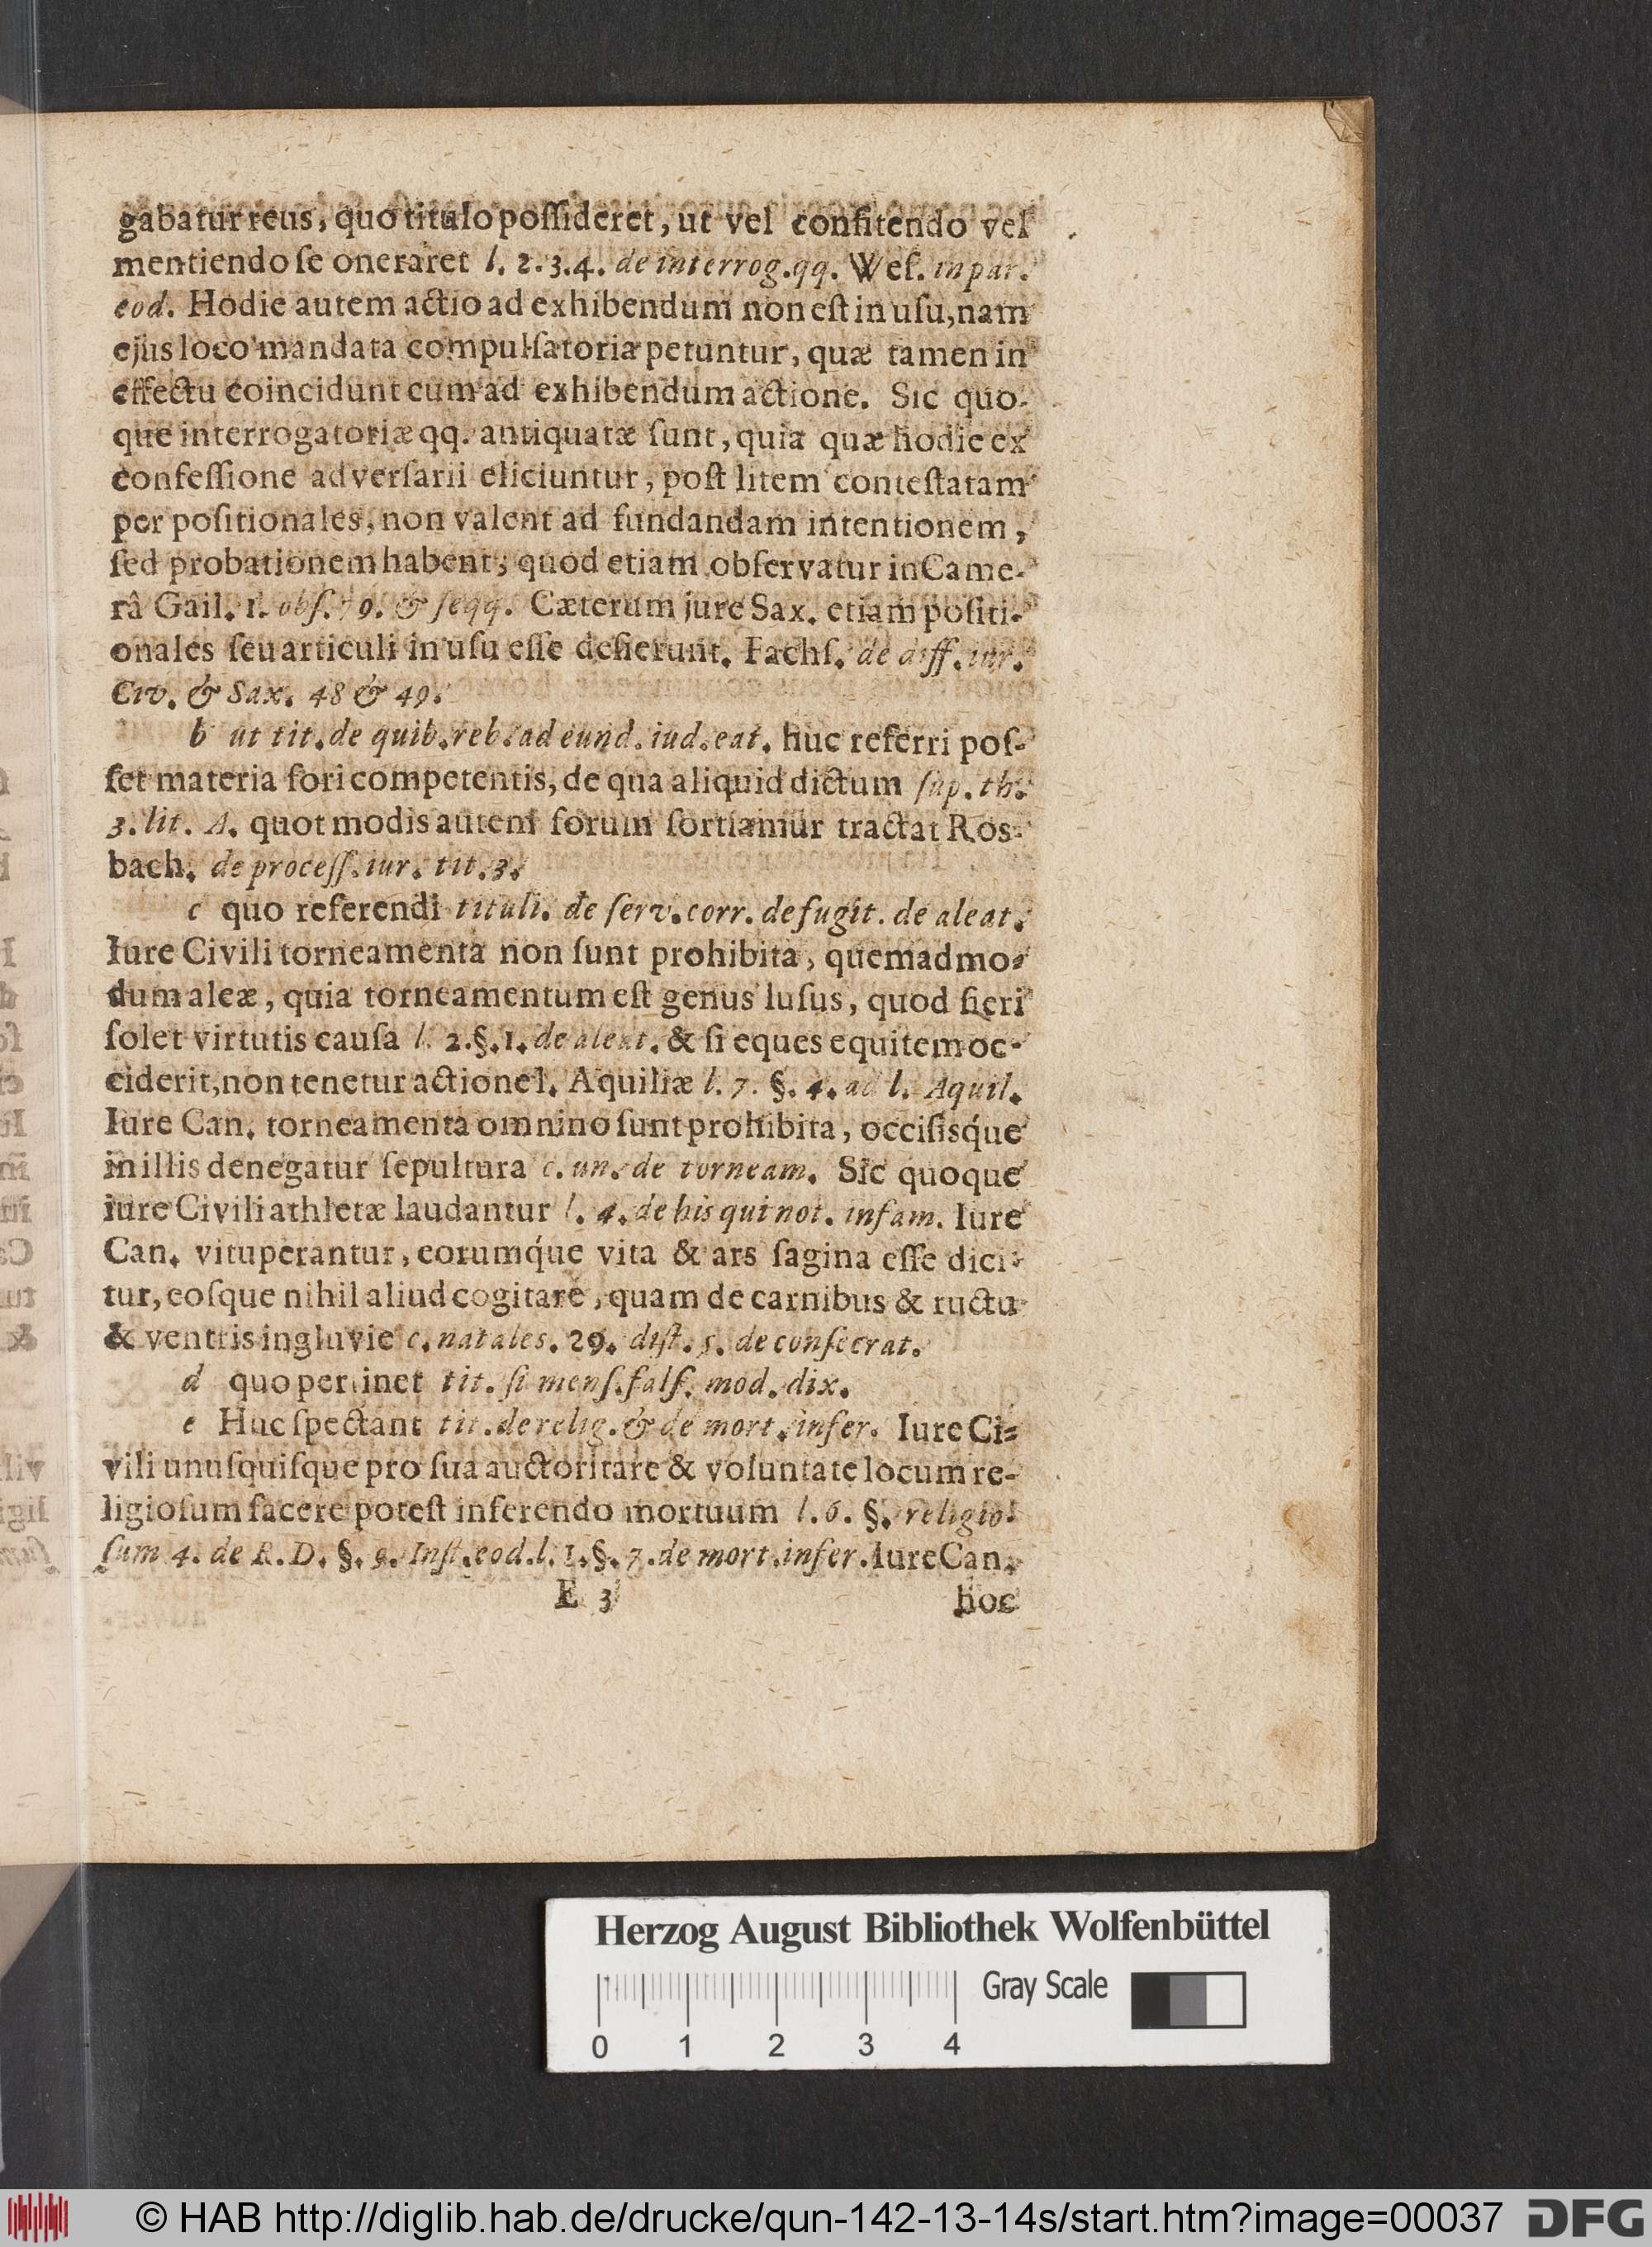 gabatur reus, quo titulo poſſideret, ut vel confitendo vel
mentiendo ſe oneraret l. 2. 3. 4. de interrog. qq. Weſ. in par.
eod. Hodie autem actio ad exhibendum non eſt in uſu, nam
ejus loco mandata compulſatoria petuntur, quæ tamen in
effectu coincidunt cum ad exhibendum actione. Sic quo-
que interrogatoriæ qq. antiquatæ ſunt, quia quæ hodie ex
confeſſione adverſarii eliciuntur, poſt litem conteſtatam
per poſitionales, non valent ad fundandam intentionem,
ſed probationem habent; quod etiam obſervatur in Came-
râ Gail. 1. obſ. 79. & ſeqq. Cæterum jure Sax. etiam poſiti-
onales ſeu articuli in uſu eſſe deſierunt. Fachſ. de diff. iur.
Civ. & Sax. 48 & 49.
b ut tit. de quib. reb. ad eund. iud. eat. huc referri poſ-
ſet materia fori competentis, de qua aliquid dictum ſup. th.
3. lit. A. quot modis autem forum ſortiamur tractat Ros-
bach. de proceſſ. iur. tit. 3.
c quo referendi tituli. de ſerv. corr. de fugit. de aleat.
Iure Civili torneamenta non ſunt prohibita, quemadmo-
dum aleæ, quia torneamentum eſt genus luſus, quod fieri
ſolet virtutis cauſa l. 2. §. 1. de aleat. & ſi eques equitem oc-
ciderit, non tenetur actione l. Aquiliæ l. 7. §. 4. ad l. Aquil.
Iure Can. torneamenta omnino ſunt prohibita, occiſisq́ue
in illis denegatur ſepultura c. un. de torneam. Sic quoque
iure Civili athletæ laudantur l. 4. de his qui not. infam. Iure
Can. vituperantur, eorumq́ue vita & ars ſagina eſſe dici-
tur, eoſque nihil aliud cogitare, quam de carnibus & ructu
& ventris ingluvie c. natales. 29. diſt. 5. de conſecrat.
d quo pertinet tit. ſi menſ. falſ. mod. dix.
e Huc ſpectant tit. de relig. & de mort. infer. Iure Ci-
vili unuſquiſque pro ſua auctoritate & voluntate locum re-
ligioſum facere poteſt inferendo mortuum l. 6. §. religio-
ſum 4. de R. D. §. 9. Inſt. eod. l. 1. §. 7. de mort. infer. Iure Can.
E 3 hoc
Herzog August Bibliothek Wolfenbüttel
Gray Scale
0 1 2 3 4
© HAB http://diglib.hab.de/drucke/qun-142-13-14s/start.htm?image=00037 DFG